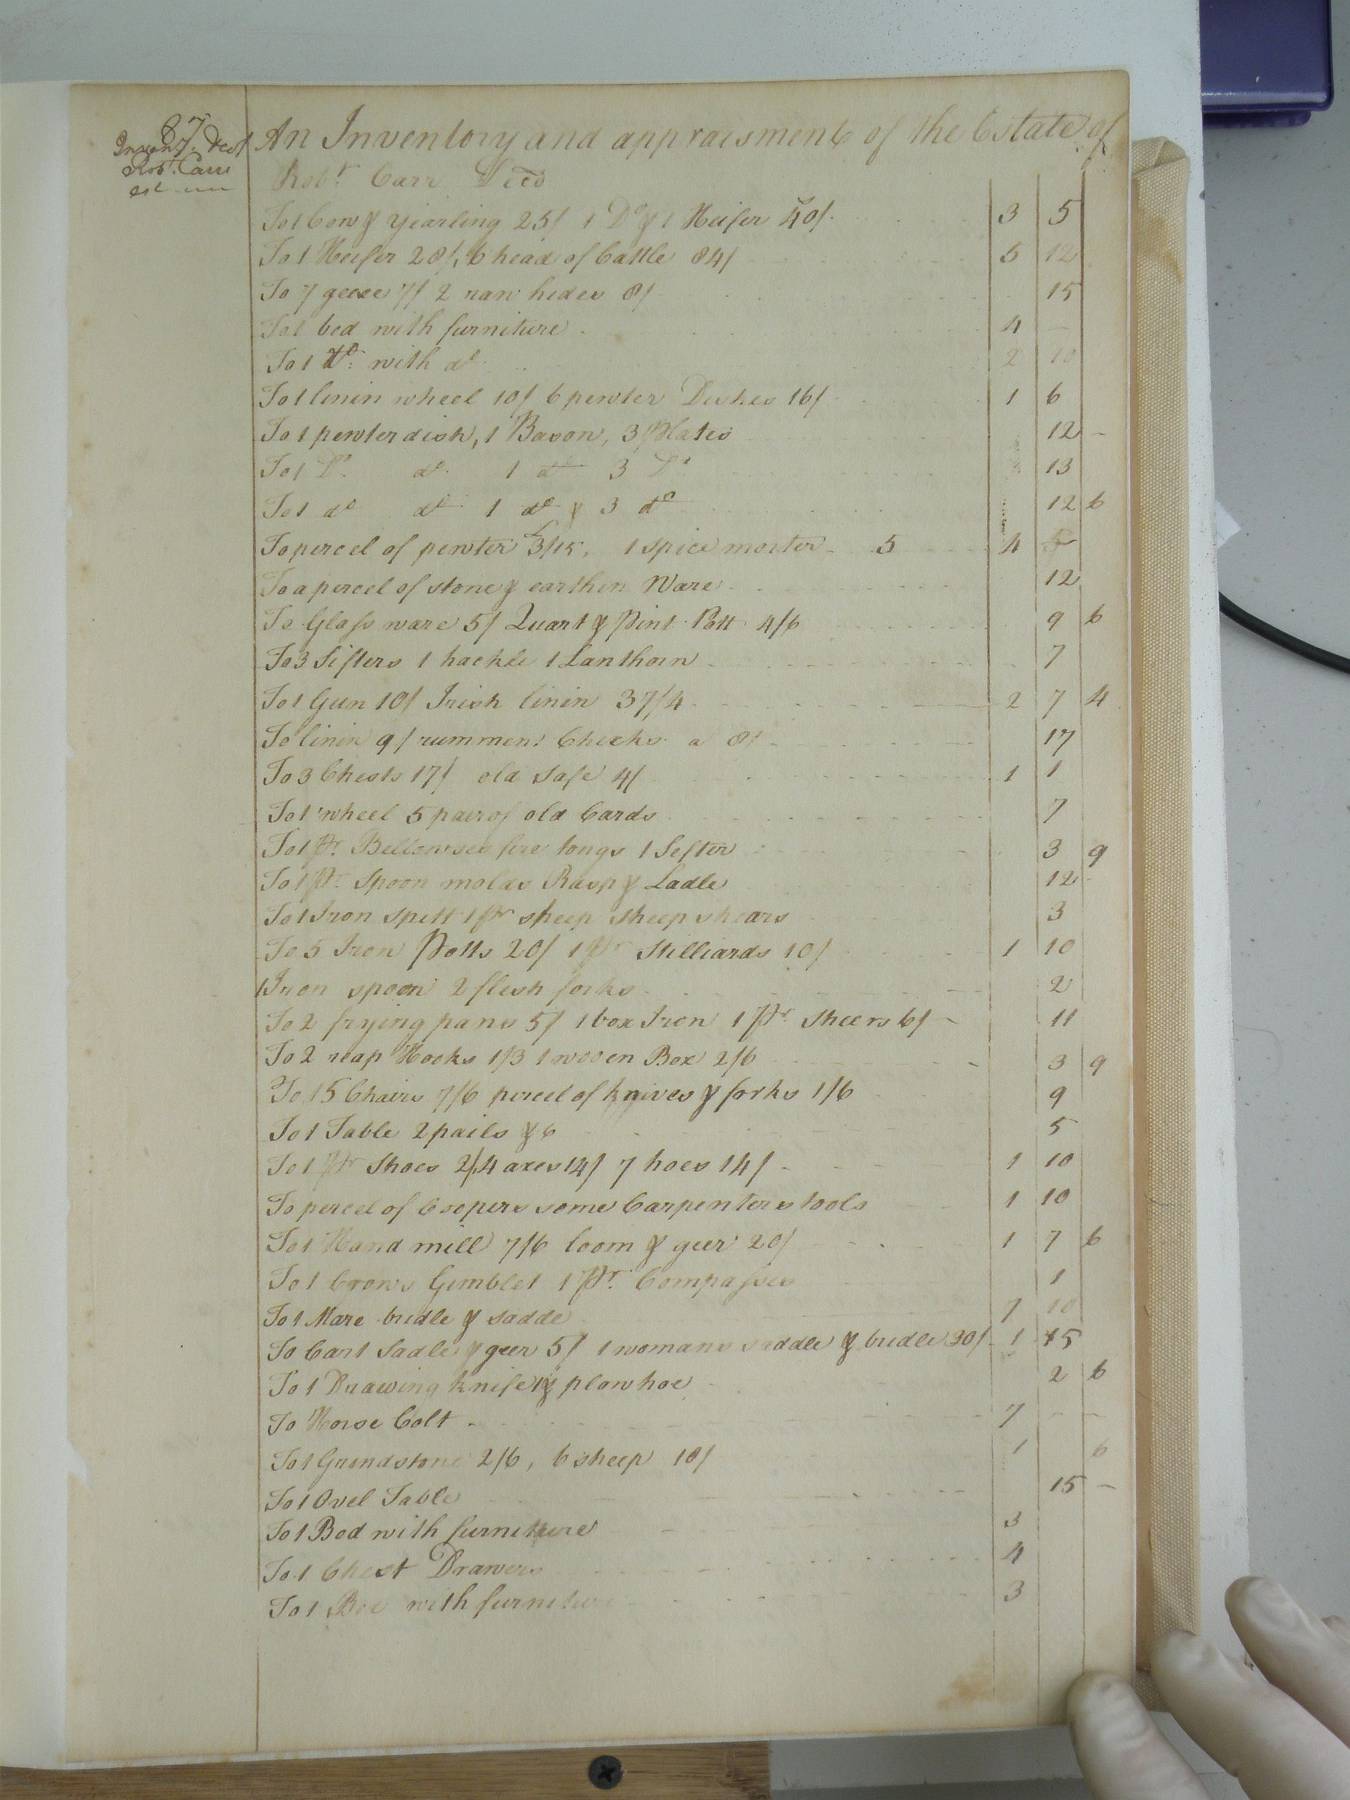 87
Inven.y Decd
Robt. Carr
An Inventory and appraisment of the Estate of
Robt. Carr Decd
To 1 Cow & yiarling 25/ 1 Do & 1 Heifer 40/ 3 5
To 1 Heifer 28/, 6 head of Cattle 84/ 5 12
To 7 geese 7/ 2 raw hides 8/ 15
To 1 bed with furniture 4 —
To 1 do. with do 2 10
To 1 linin wheel 10/ 6 pewter Dishes 16/ 1 6
To 1 pewter dish, 1 Bason, 3 Plates 12 -
To 1 Do. do 1 do 3 Do 13
To 1 do do 1 do & 3 do 12 6
To percel of pewter £3/15, 1 spice morter 5 4
To a percel of stone & earthen Ware 12
To Glass ware 5/ Quart & Pint Pott 4/6 9 6
To 3 Sifters 1 hackle 1 Lanthorn 7
To 1 Gun 10/ Irish linin 37/4 2 7 4
To linin 9/ rummen! Checks a 8/ 17
To 3 Chests 17/ old Safe 4/ 1 1
To 1 wheel 5 pair of old Cards 7
To 1 Pr. Bellowses fire tongs 1 Sefter 3 9
To 1 Pr. Spoon molds Rasp & Ladle 12
To 1 Iron Spitt 1 Pr sheep sheep shears 3
To 5 Iron Potts 20/ 1 Pr Stilliards 10/ 1 10
1 Iron spoon 2 flesh forks 2
To 2 frying pans 5/ 1 box Iron 1 Pr. Sheers 6/ 11
To 2 reap Hooks 1/3 1 wooen Box 2/6 3 9
To 15 Chairs 7/6 percel of knives & forks 1/6 9
To 1 Table 2 pails & 6 5
To 1 Pr Shoes 2/ 4 axes 14/ 7 hoes 14/ 1 10
To percel of Coopers some Carpenters tools 1 10
To 1 Hand mill 7/6 loom & geer 20/ 1 7 6
To 1 Crows Gimblet 1 Pr. Compasses 1
To 1 Mare bridle & sadde 7 10
To Cart Sadle & geer 5/ 1 womans saddle & bridle 30/ 1 15
To 1 Drawing knife & plow hoe 2 6
To Horse Colt 7 — —
To 1 Grindstone 2/6, 6 sheep 18/ 1 6
To 1 Ovel Table 15 —
To 1 Bed with furniture 3
To 1 Chest Drawers 4
To 1 Bed with furniture 3